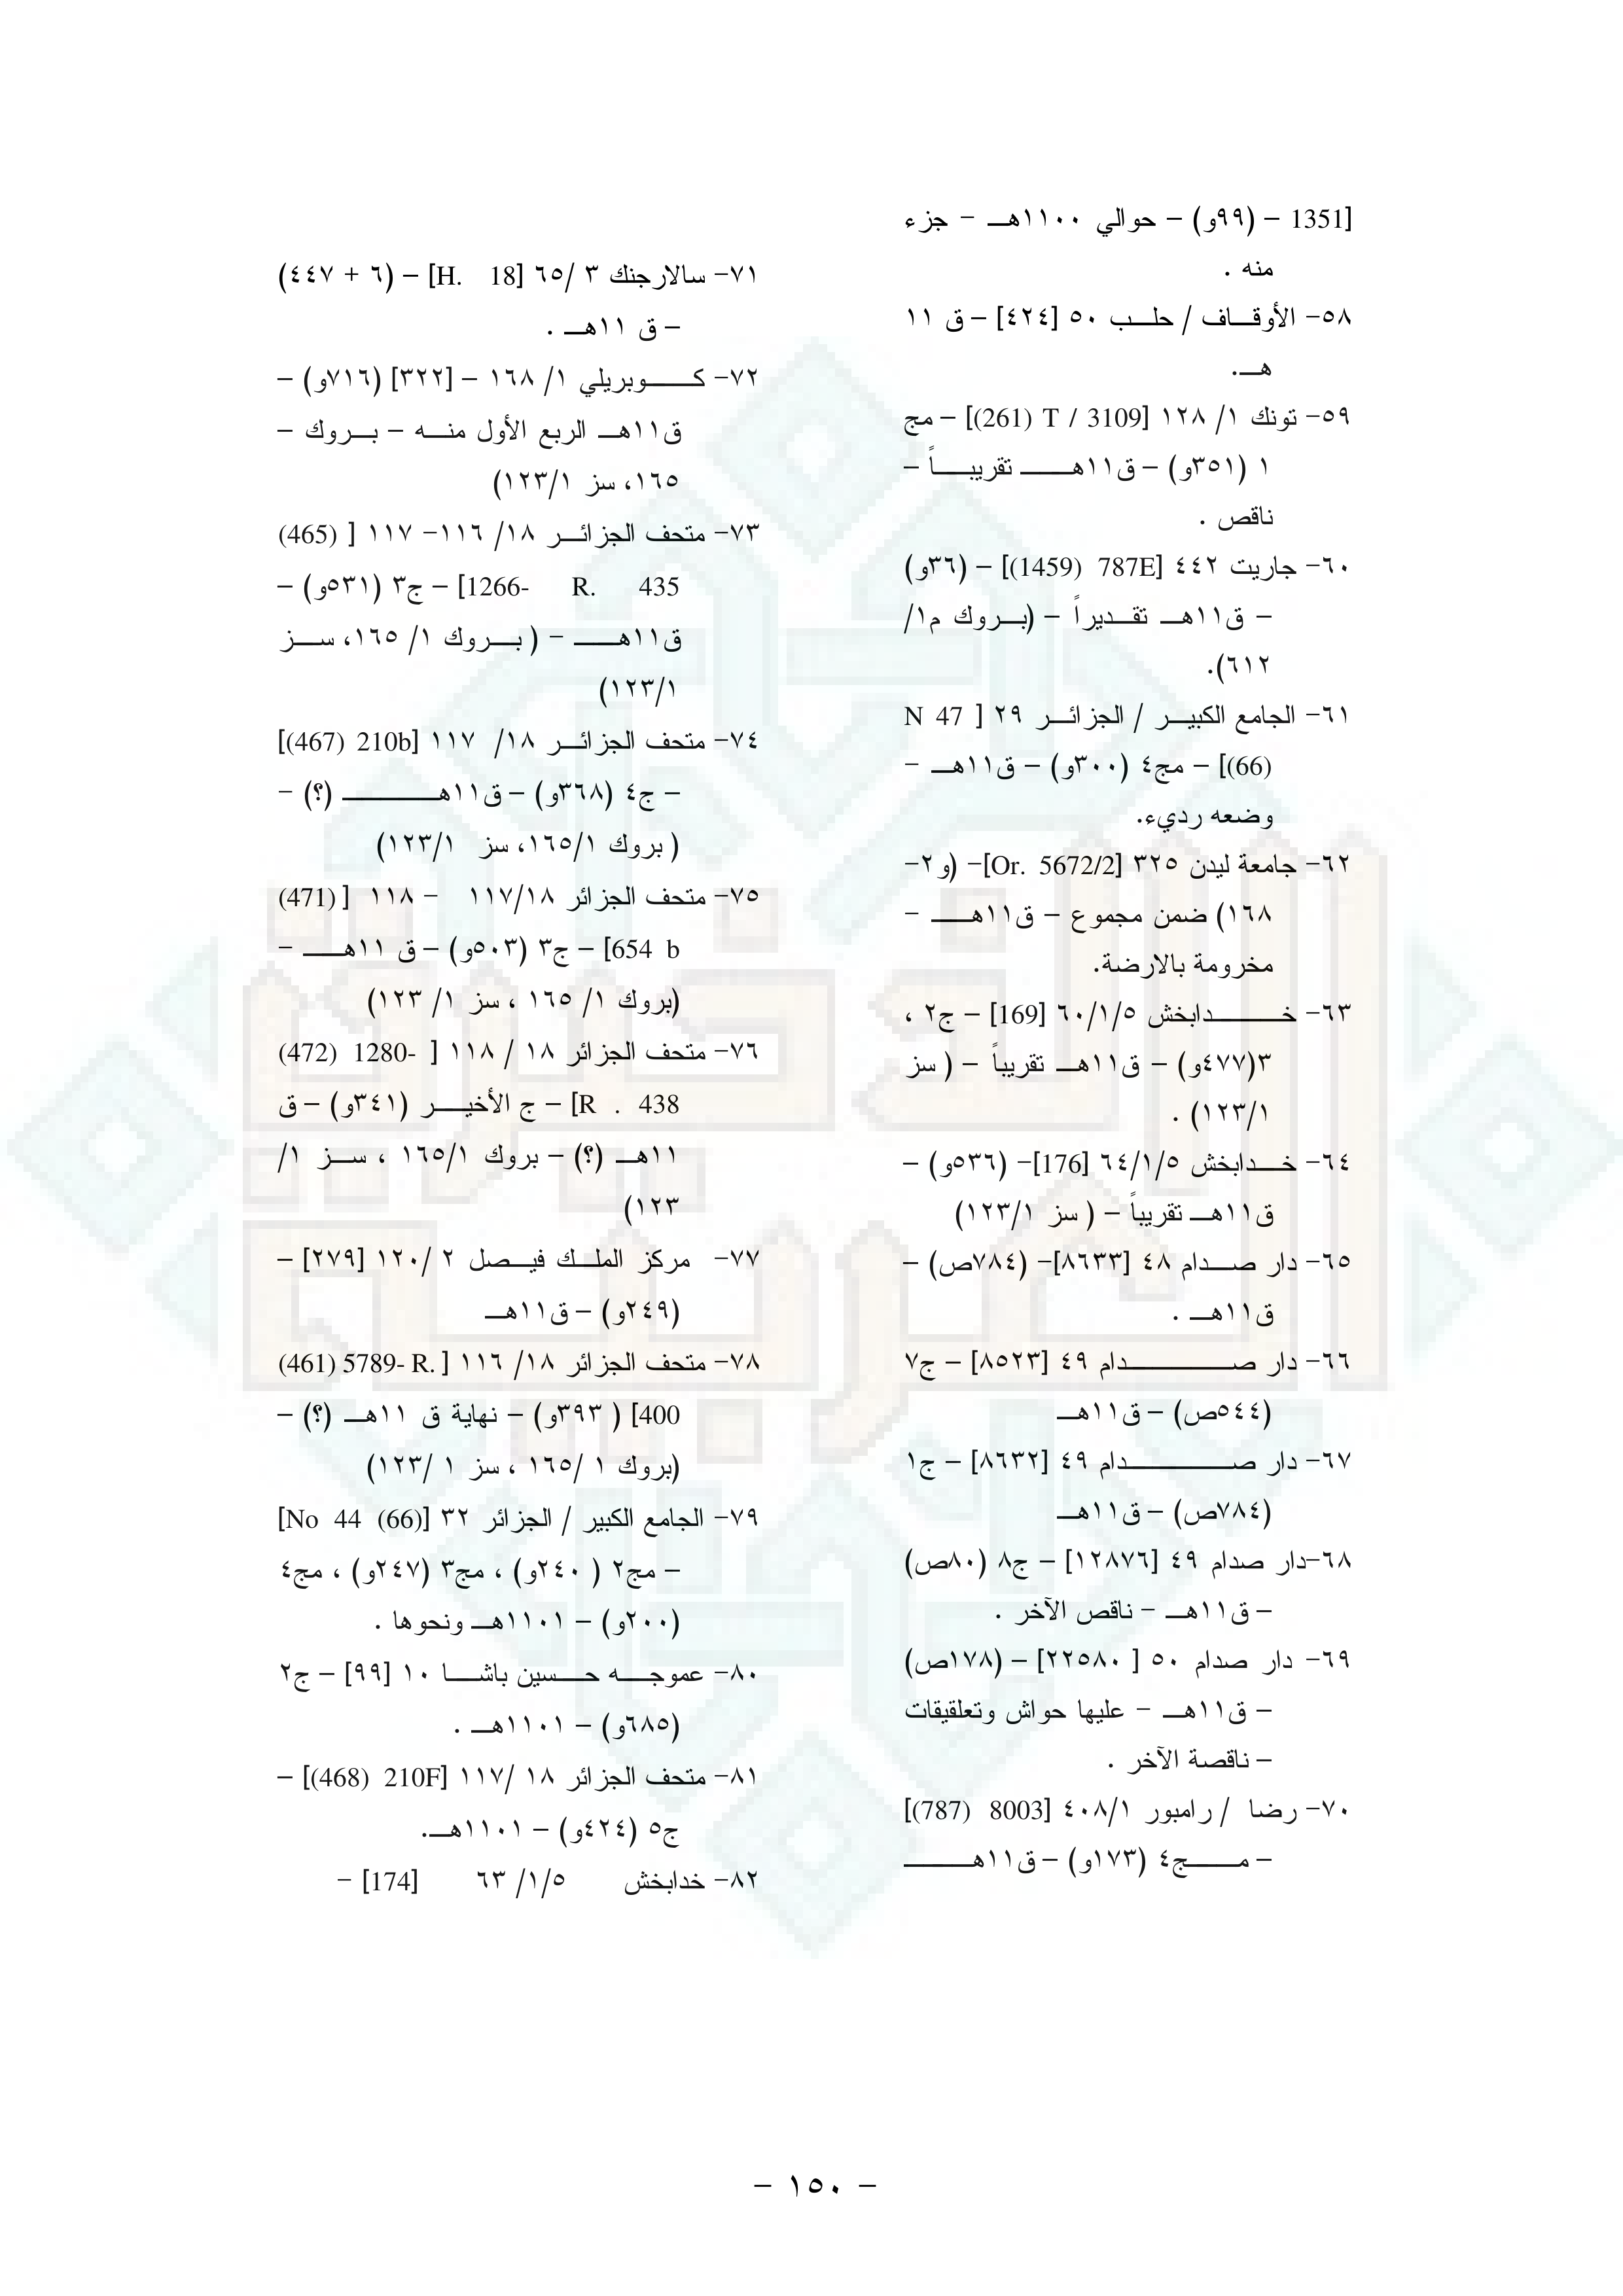 1351] – (٩٩و) – حوالي ١١٠٠هـ – جزء
منه .
٥٨– الأوقاف / حلب ٥٠ [٤٢٤] – ق ١١
هـ.
٥٩– تونك ١/ ١٢٨ [3109 / T (261)] – مج
١ (٣٥١و) – ق١١هـ تقريباً –
ناقص .
٦٠– جاريت ٤٤٢ [787E (1459)] – (٣٦و)
– ق١١هـ تقديراً – (بروك م١/
٦١٢).
٦١– الجامع الكبير / الجزائر ٢٩ [ N 47
(66)] – مج٤ (٣٠٠و) – ق١١هـ –
وضعه رديء.
٦٢– جامعة ليدن ٣٢٥ [Or. 5672/2]– (و٢–
١٦٨) ضمن مجموع – ق١١هـ –
مخرومة بالارضة.
٦٣– خدابخش ٦٠/١/٥ [169] – ج٢ ،
٣(٤٧٧و) – ق١١هـ تقريباً – ( سز
١٢٣/١) .
٦٤– خدابخش ٦٤/١/٥ [176]– (٥٣٦و) –
ق١١هـ تقريباً – ( سز ١٢٣/١)
٦٥– دار صدام ٤٨ [٨٦٣٣]– (٧٨٤ص) –
ق١١هـ .
٦٦– دار صدام ٤٩ [٨٥٢٣] – ج٧
(٥٤٤ص) – ق١١هـ
٦٧– دار صدام ٤٩ [٨٦٣٢] – ج١
(٧٨٤ص) – ق١١هـ
٦٨–دار صدام ٤٩ [١٢٨٧٦] – ج٨ (٨٠ص)
– ق١١هـ – ناقص الآخر .
٦٩– دار صدام ٥٠ [ ٢٢٥٨٠] – (١٧٨ص)
– ق١١هـ – عليها حواش وتعلقيقات
– ناقصة الآخر .
٧٠– رضا / رامبور ٤٠٨/١ [8003 (787)]
– مج٤ (١٧٣و) – ق١١هـ
٧١– سالارجنك ٣ /٦٥ [H. 18] – (٦ + ٤٤٧)
– ق ١١هـ .
٧٢– كوبريلي ١/ ١٦٨ – [٣٢٢] (٧١٦و) –
ق١١هـ الربع الأول منه – بروك –
١٦٥، سز ١٢٣/١)
٧٣– متحف الجزائر ١٨/ ١١٦– ١١٧ [ (465)
1266- R. 435] – ج٣ (٥٣١و) –
ق١١هـ – ( بروك ١/ ١٦٥، سز
١٢٣/١)
٧٤– متحف الجزائر ١٨/ ١١٧ [210b (467)]
– ج٤ (٣٦٨و) – ق١١هـ (؟) –
( بروك ١٦٥/١، سز ١٢٣/١)
٧٥– متحف الجزائر ١١٧/١٨ – ١١٨ [ (471)
654 b] – ج٣ (٥٠٣و) – ق ١١هـ –
(بروك ١/ ١٦٥ ، سز ١/ ١٢٣)
٧٦– متحف الجزائر ١٨ / ١١٨ [ (472) 1280-
R . 438] – ج الأخير (٣٤١و) – ق
١١هـ (؟) – بروك ١٦٥/١ ، سز ١/
١٢٣)
٧٧– مركز الملك فيصل ٢ /١٢٠ [٢٧٩] –
(٢٤٩و) – ق١١هـ
٧٨– متحف الجزائر ١٨/ ١١٦ [ (461) 5789- R.
400] ( ٣٩٣و) – نهاية ق ١١هـ (؟) –
(بروك ١ /١٦٥ ، سز ١ /١٢٣)
٧٩– الجامع الكبير / الجزائر ٣٢ [No 44 (66)]
– مج٢ ( ٢٤٠و) ، مج٣ (٢٤٧و) ، مج٤
(٢٠٠و) – ١١٠١هـ ونحوها .
٨٠– عموجه حسين باشا ١٠ [٩٩] – ج٢
(٦٨٥و) – ١١٠١هـ .
٨١– متحف الجزائر ١٨ /١١٧ [210F (468)] –
ج٥ (٤٢٤و) – ١١٠١هـ.
٨٢– خدابخش ٥/١/ ٦٣ [174] –
– ١٥٠ –